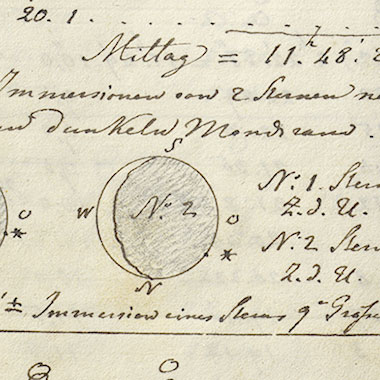 20. 1.
Mittag = 11.h 48.
Immersionen von 2 Sternen
dunkeln Mondrand.
S
W No: 2 O
N
O
No: 1. Stern
Z. d. U.
No: 2 Stern
Z. d. U.
± Immersion eines Sterns 9r Größe